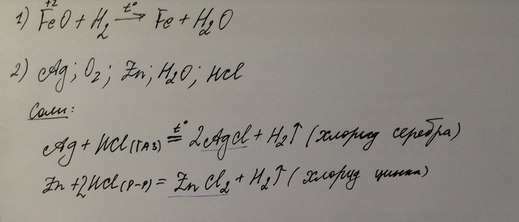 +2
1) FeO + H₂ t°→ Fe + H₂O
2) Ag; O₂; Zn; H₂O; HCl
Соли:
Ag + HCl (ГАЗ) t°= 2AgCl + H₂↑ (хлорид серебра)
Zn + 2HCl (р-р) = ZnCl₂ + H₂↑ (хлорид цинка)